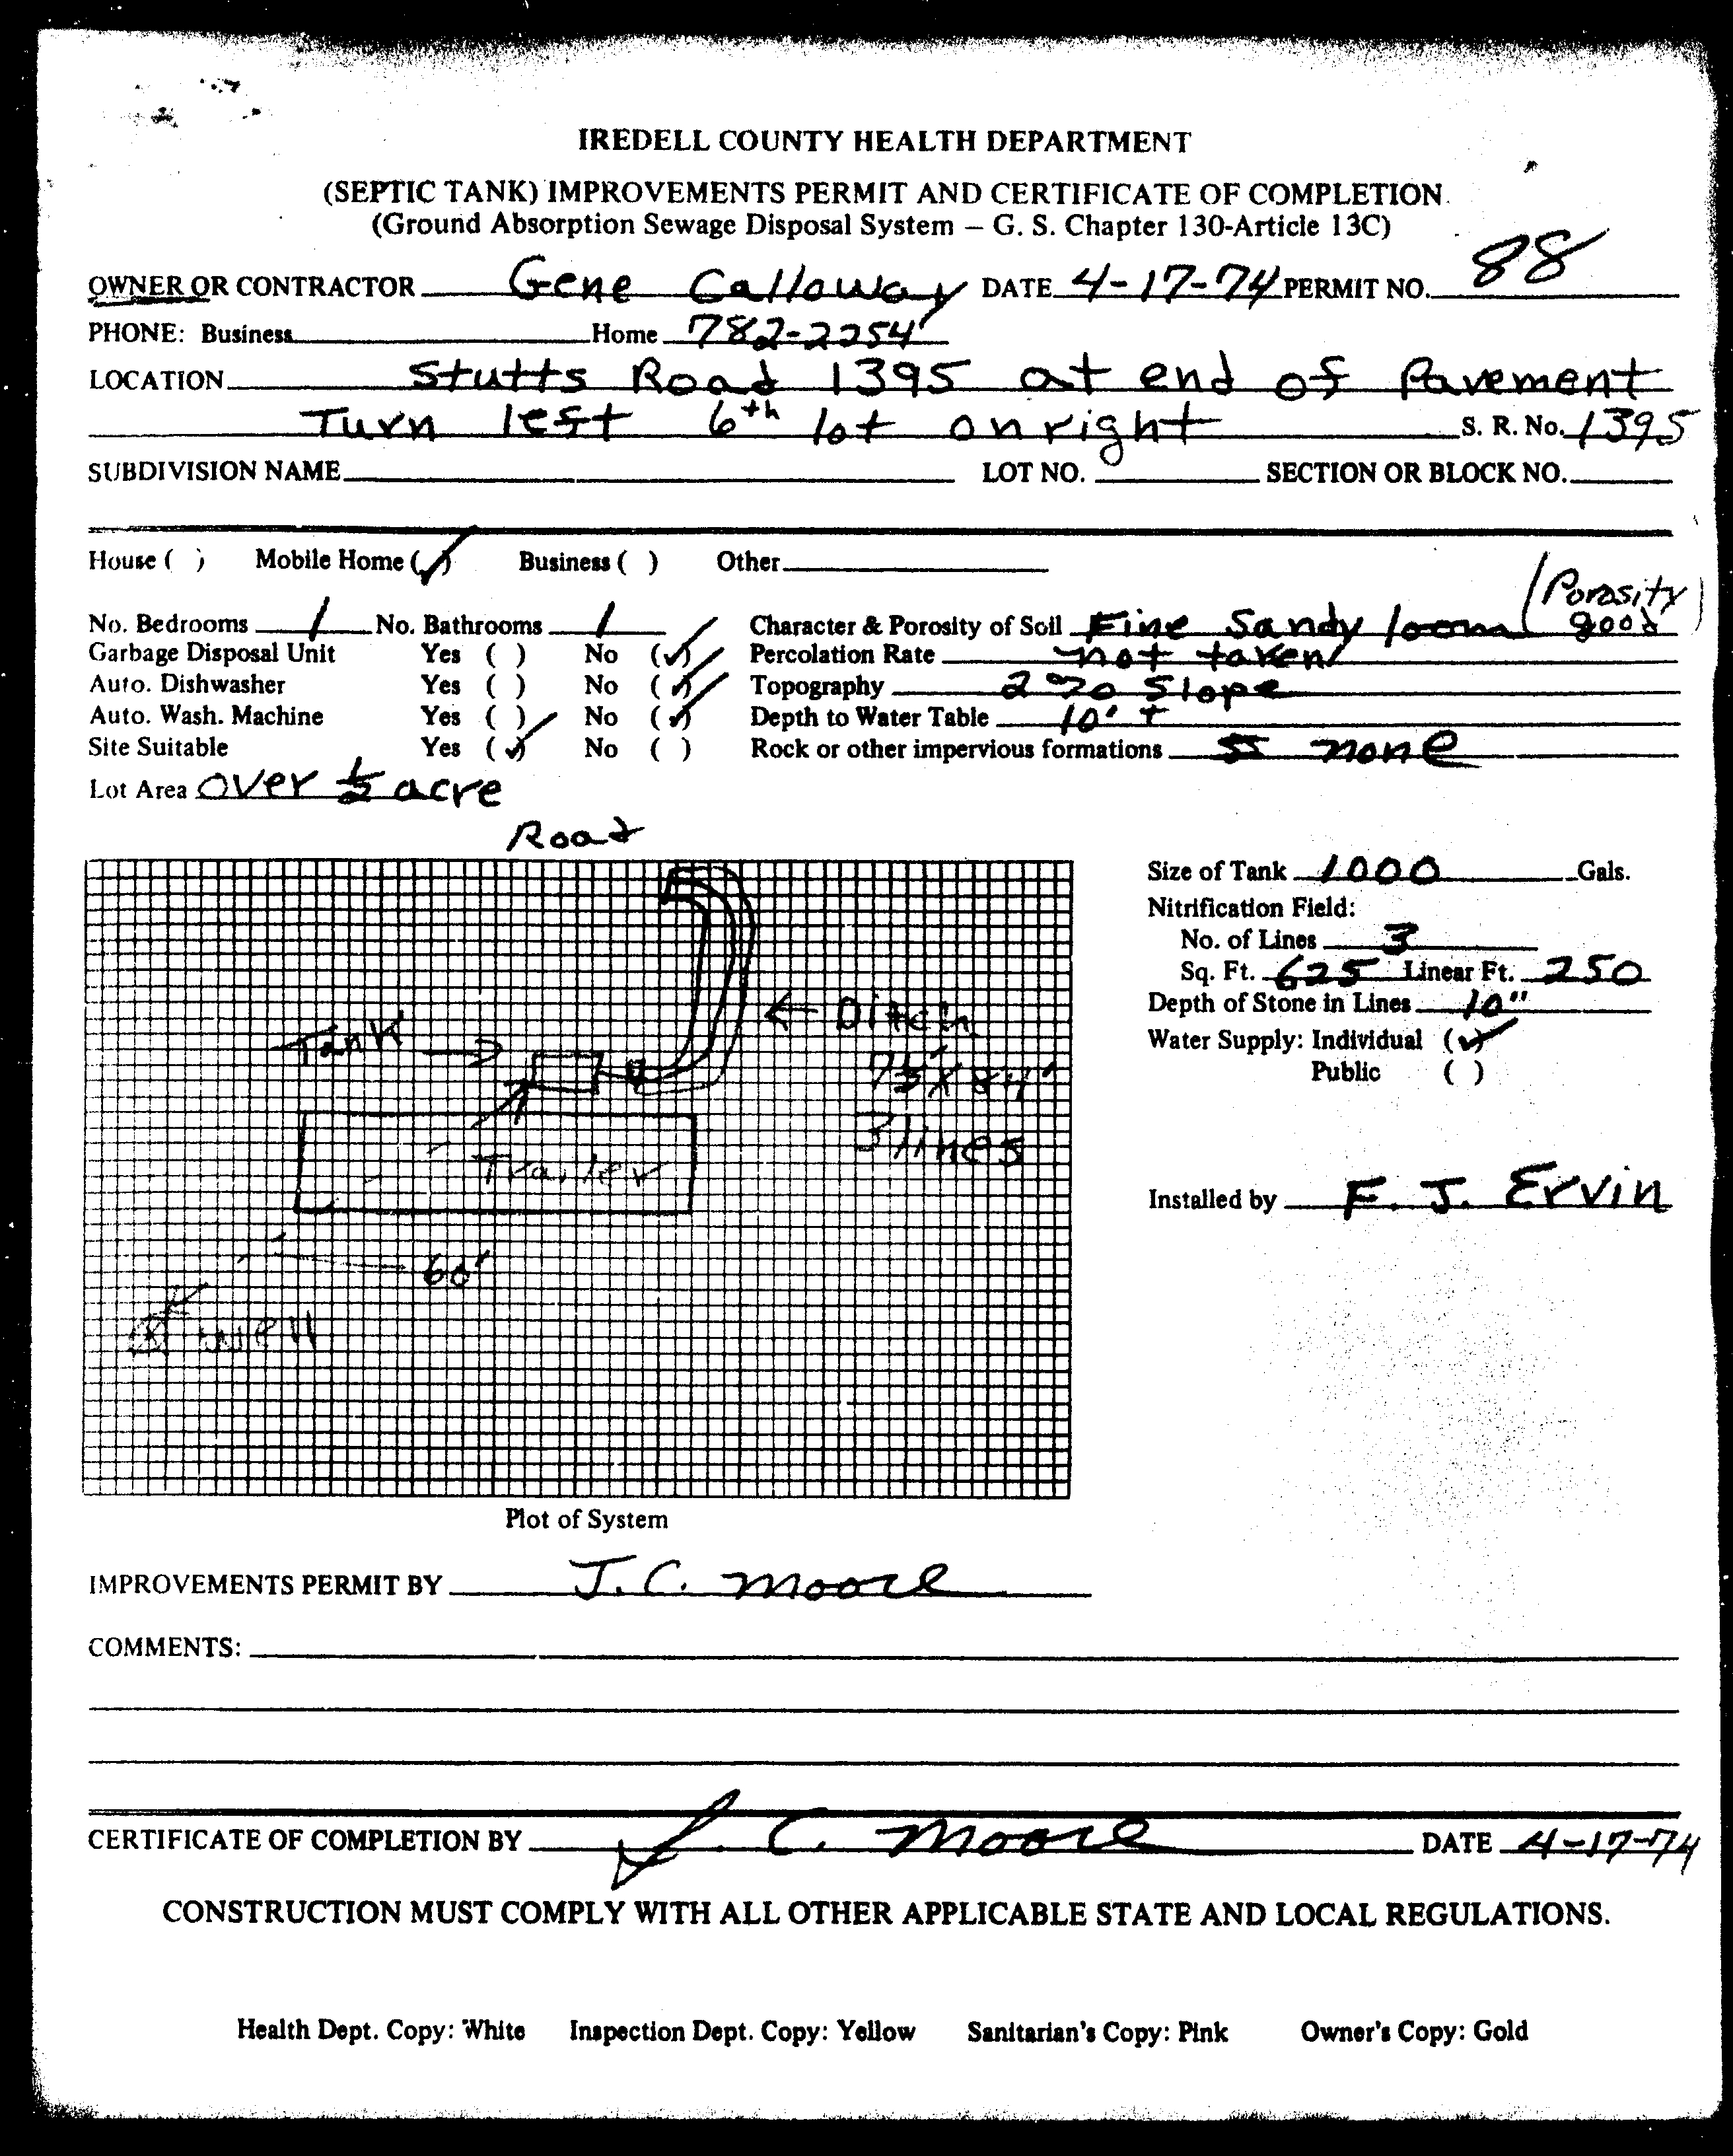 IREDELL COUNTY HEALTH DEPARTMENT
(SEPTIC TANK) IMPROVEMENTS PERMIT AND CERTIFICATE OF COMPLETION
(Ground Absorption Sewage Disposal System – G. S. Chapter 130-Article 13C)
OWNER OR CONTRACTOR Gene Calloway DATE 4-17-74 PERMIT NO. 88
PHONE: Business Home 782-2254
LOCATION Stutts Road 1395 at end of Pavement
Turn left 6th lot on right S. R. No. 1395
SUBDIVISION NAME LOT NO. SECTION OR BLOCK NO.
House ( ) Mobile Home (✓) Business ( ) Other
(Porosity
No. Bedrooms 1 No. Bathrooms 1 Character & Porosity of Soil Fine Sandy loam good)
Garbage Disposal Unit Yes ( ) No (✓) Percolation Rate not taken
Auto. Dishwasher Yes ( ) No (✓) Topography 2% Slope
Auto. Wash. Machine Yes ( ) No (✓) Depth to Water Table 10' +
Site Suitable Yes (✓) No ( ) Rock or other impervious formations none
Lot Area Over ½ acre
Road
Size of Tank 1000 Gals.
Nitrification Field:
No. of Lines 3
Sq. Ft. 625 Linear Ft. 250
Depth of Stone in Lines 10"
Water Supply: Individual (✓)
Public ( )
Tank
Ditch
84'
3 lines
Trailer
Installed by F. J. Ervin
60'
Well
Plot of System
IMPROVEMENTS PERMIT BY J. C. Moore
COMMENTS:
CERTIFICATE OF COMPLETION BY J. C. Moore DATE 4-17-74
CONSTRUCTION MUST COMPLY WITH ALL OTHER APPLICABLE STATE AND LOCAL REGULATIONS.
Health Dept. Copy: White Inspection Dept. Copy: Yellow Sanitarian's Copy: Pink Owner's Copy: Gold